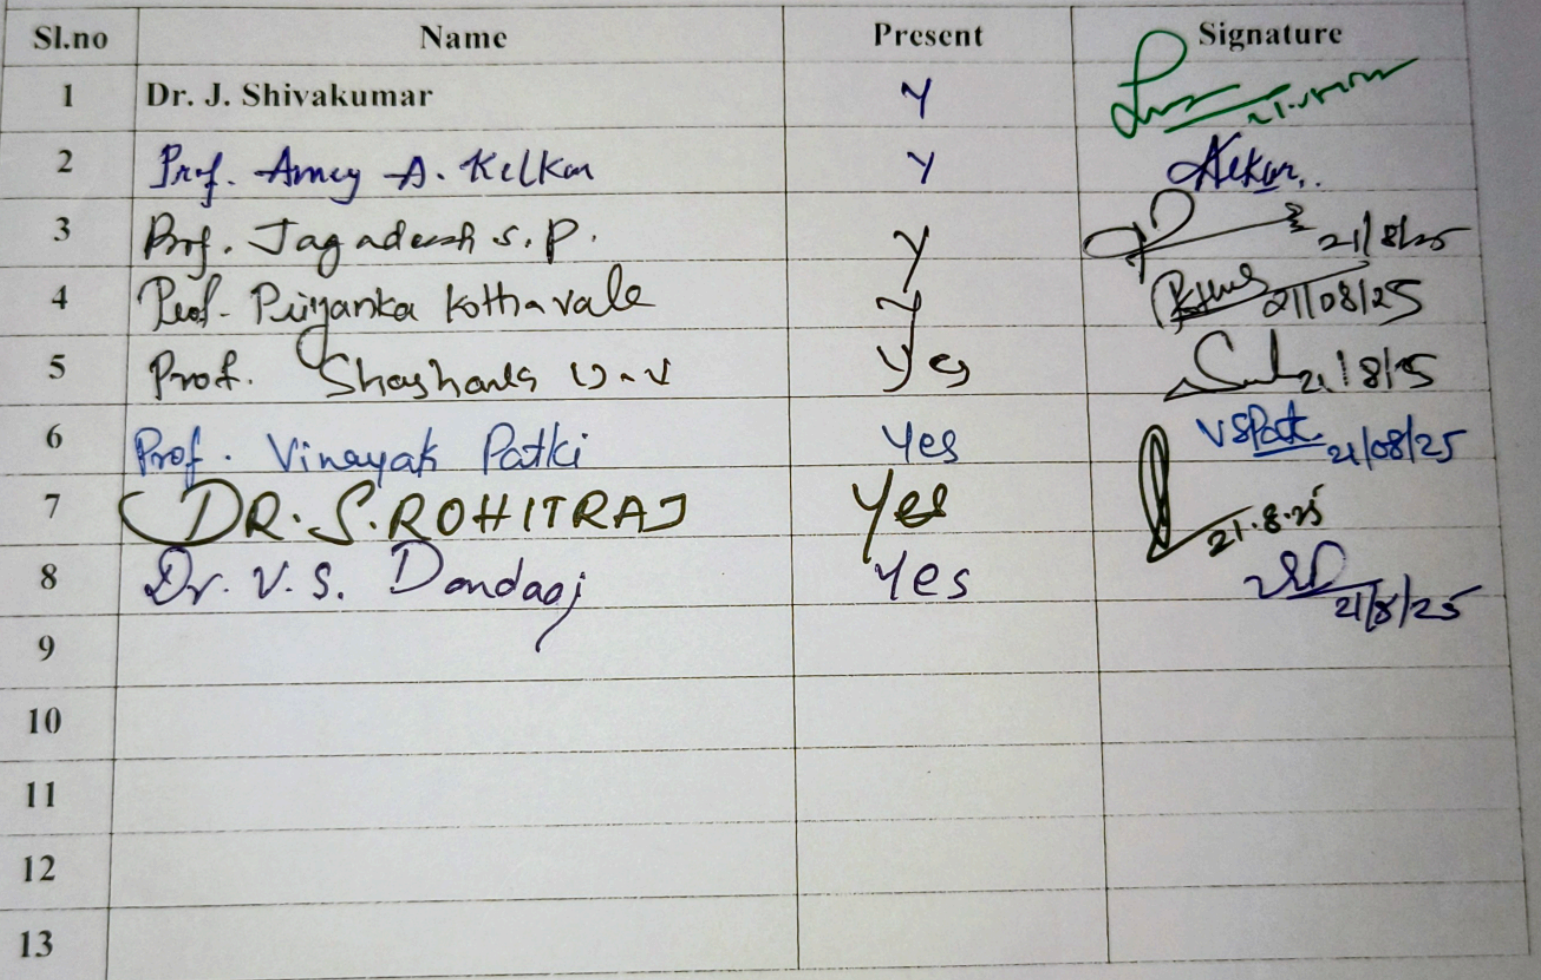 Sl.no Name Present Signature
1 Dr. J. Shivakumar Y
2 Prof. Amey A. Kelkar Y
3 Prof. Jagadeesh S. P. Y 21/8/25
4 Prof. Priyanka Kothavale Y 21/08/25
5 Prof. Shashank Yes 21/8/25
6 Prof. Vinayak Patki Yes VSPatki 21/08/25
7 DR. S. ROHITRAJ Yes 21.8.25
8 Dr. V. S. Yes 21/8/25
9
10
11
12
13